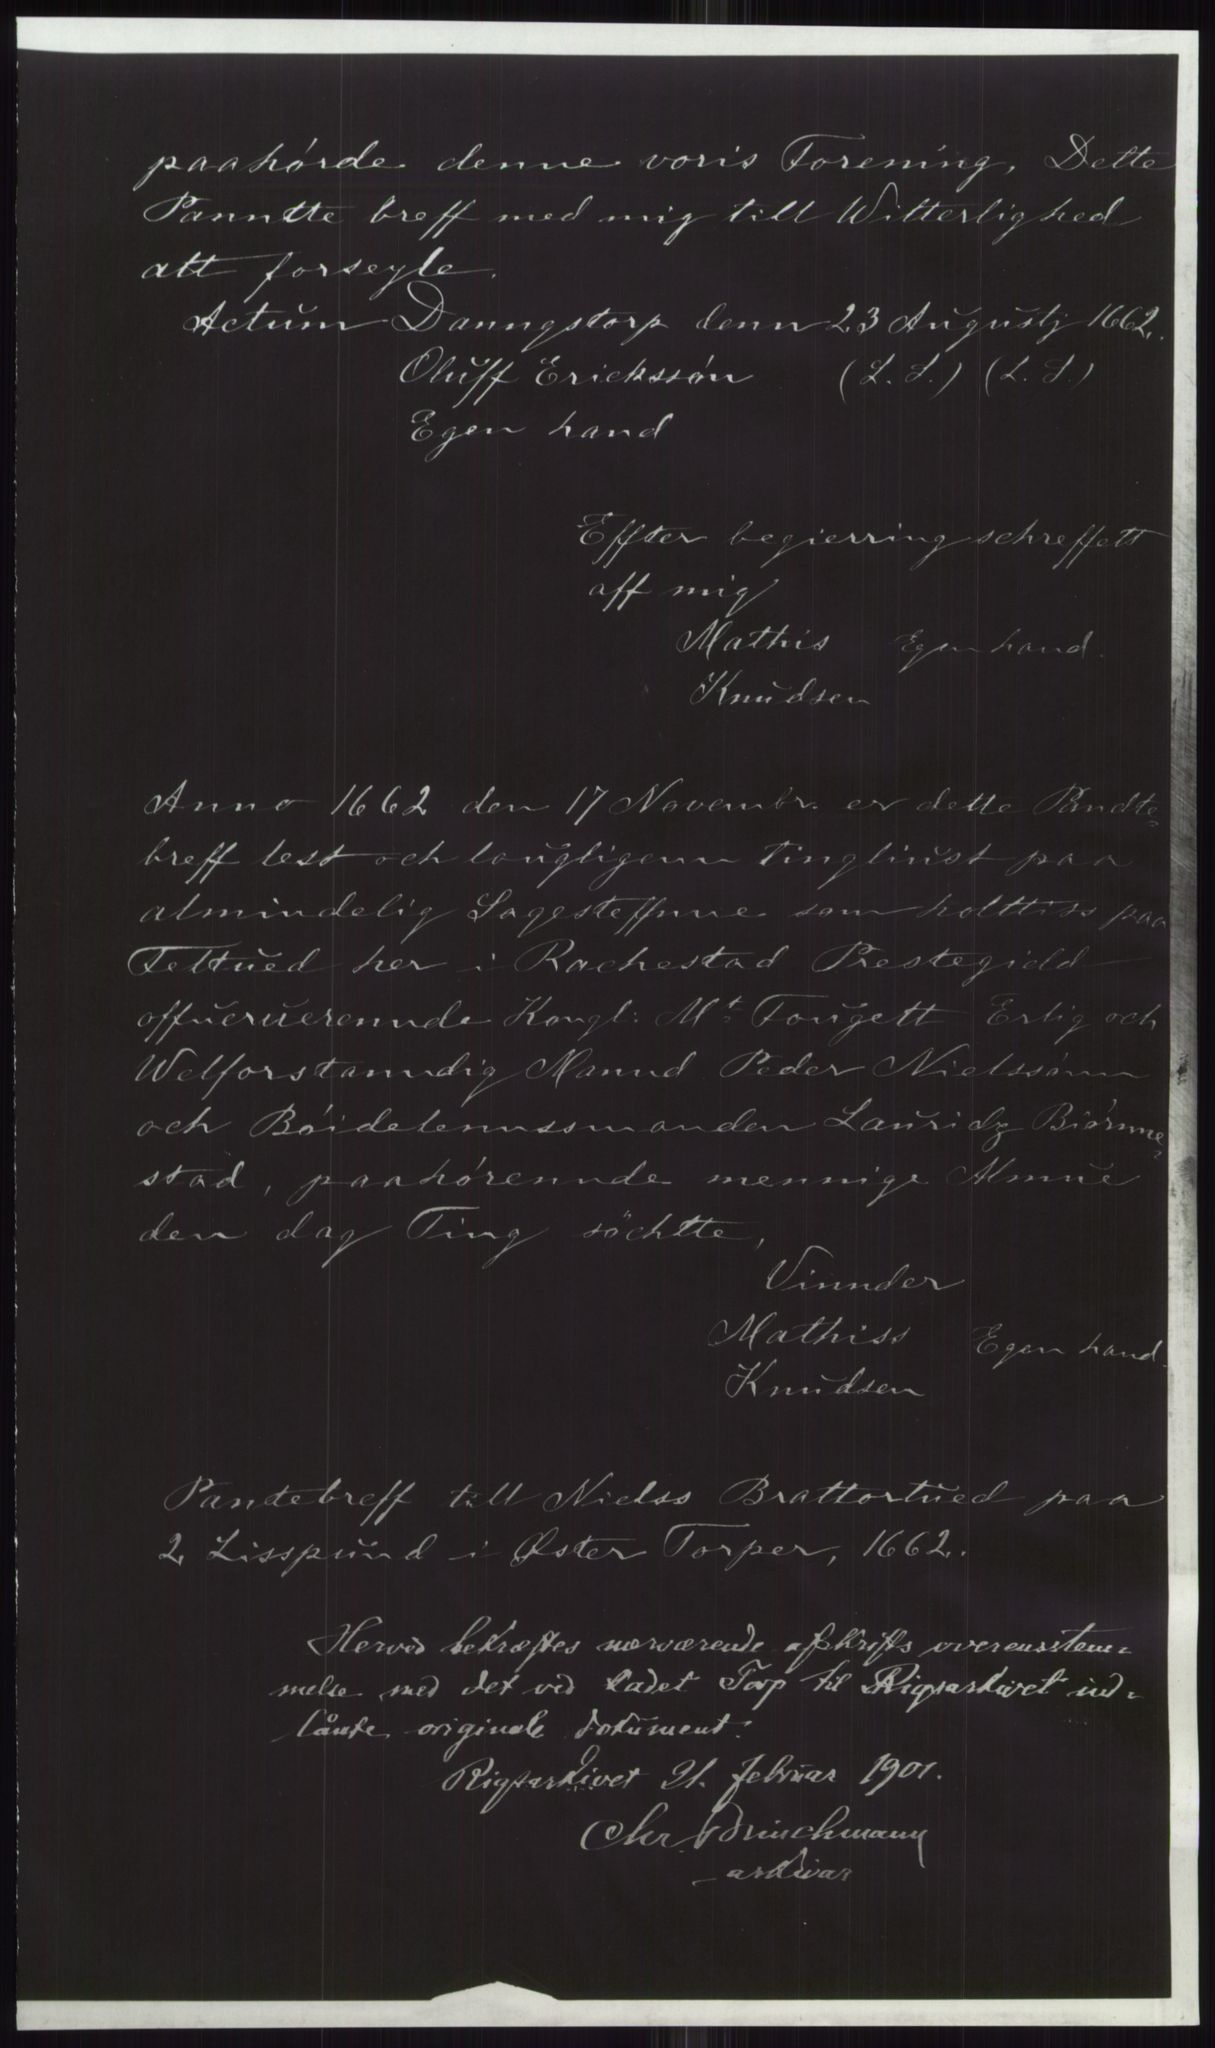 paahørde denne voris Forening. Dette
Panntte breff med mig till Witterlighed
att forseyle.
Actum Danngstorp denn 23 Augustj 1662.
Oluff Erickssøn (L. S.) (L. S.)
Egen hand
Effter begierring schreffett
aff mig
Mathis Egen hand.
Knudsen
Anno 1662 den 17 Novembr. er dette Pandte-
breff lest och lougligenn tingliust paa
almindelig Lagesteffnne som holttiss paa
Teltued her i Rachestad Prestegield
offueruerennde Kongl: Mt: Fougett Erlig och
Welforstanndig Mannd Peder Nielssønn
och Bøidelennssmanden Lauridz Biørnne-
stad, paahørennde mennige Almue
den dag Ting söchtte,
Vinnder
Mathiss Egen hand.
Knudsen
Pantebreff till Nielss Brattortued paa
2 Lisspund i Øster Torper, 1662.
Herved bekræftes nærværende afskrifts overensstem-
melse med det ved Ladet Torp til Rigsarkivet ind-
lånte originale dokument.
Rigsarkivet 21. februar 1901.
Chr. Brinchmann
arkivar